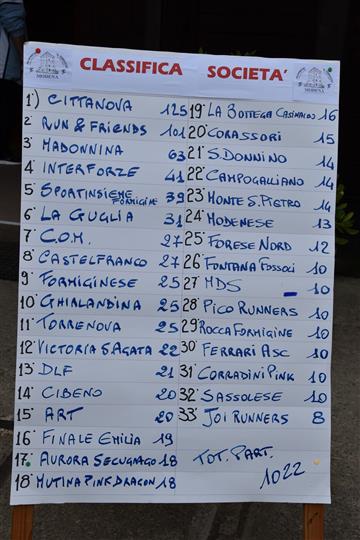 MODENA
CLASSIFICA SOCIETA'
MODENA
1°) CITTANOVA 125
2° RUN & FRIENDS 101
3° MADONNINA 63
4° INTERFORZE 41
5° SPORTINSIEME FORMIGINE 39
6° LA GUGLIA 31
7° C.O.M. 27
8° CASTELFRANCO 27
9° FORMIGINESE 25
10° GHIRLANDINA 25
11° TORRENOVA 25
12° VICTORIA S.AGATA 22
13° DLF 21
14° CIBENO 20
15° ART 20
16° FINALE EMILIA 19
17° AURORA SECUGNAGO 18
18° MUTINA PINK DRAGON 18
19° LA BOTTEGA 16
20° CORASSORI 15
21° S.DONNINO 14
22° CAMPOGALLIANO 14
23° MONTE S.PIETRO 14
24° MODENESE 13
25° FORESE NORD 12
26° FONTANA FOSSOLI 10
27° MDS 10
28° PICO RUNNERS 10
29° ROCCA FORMIGINE 10
30° FERRARI ASC 10
31° CORRADINI PINK 10
32° SASSOLESE 10
33° JOI RUNNERS 8
TOT. PART.
1022